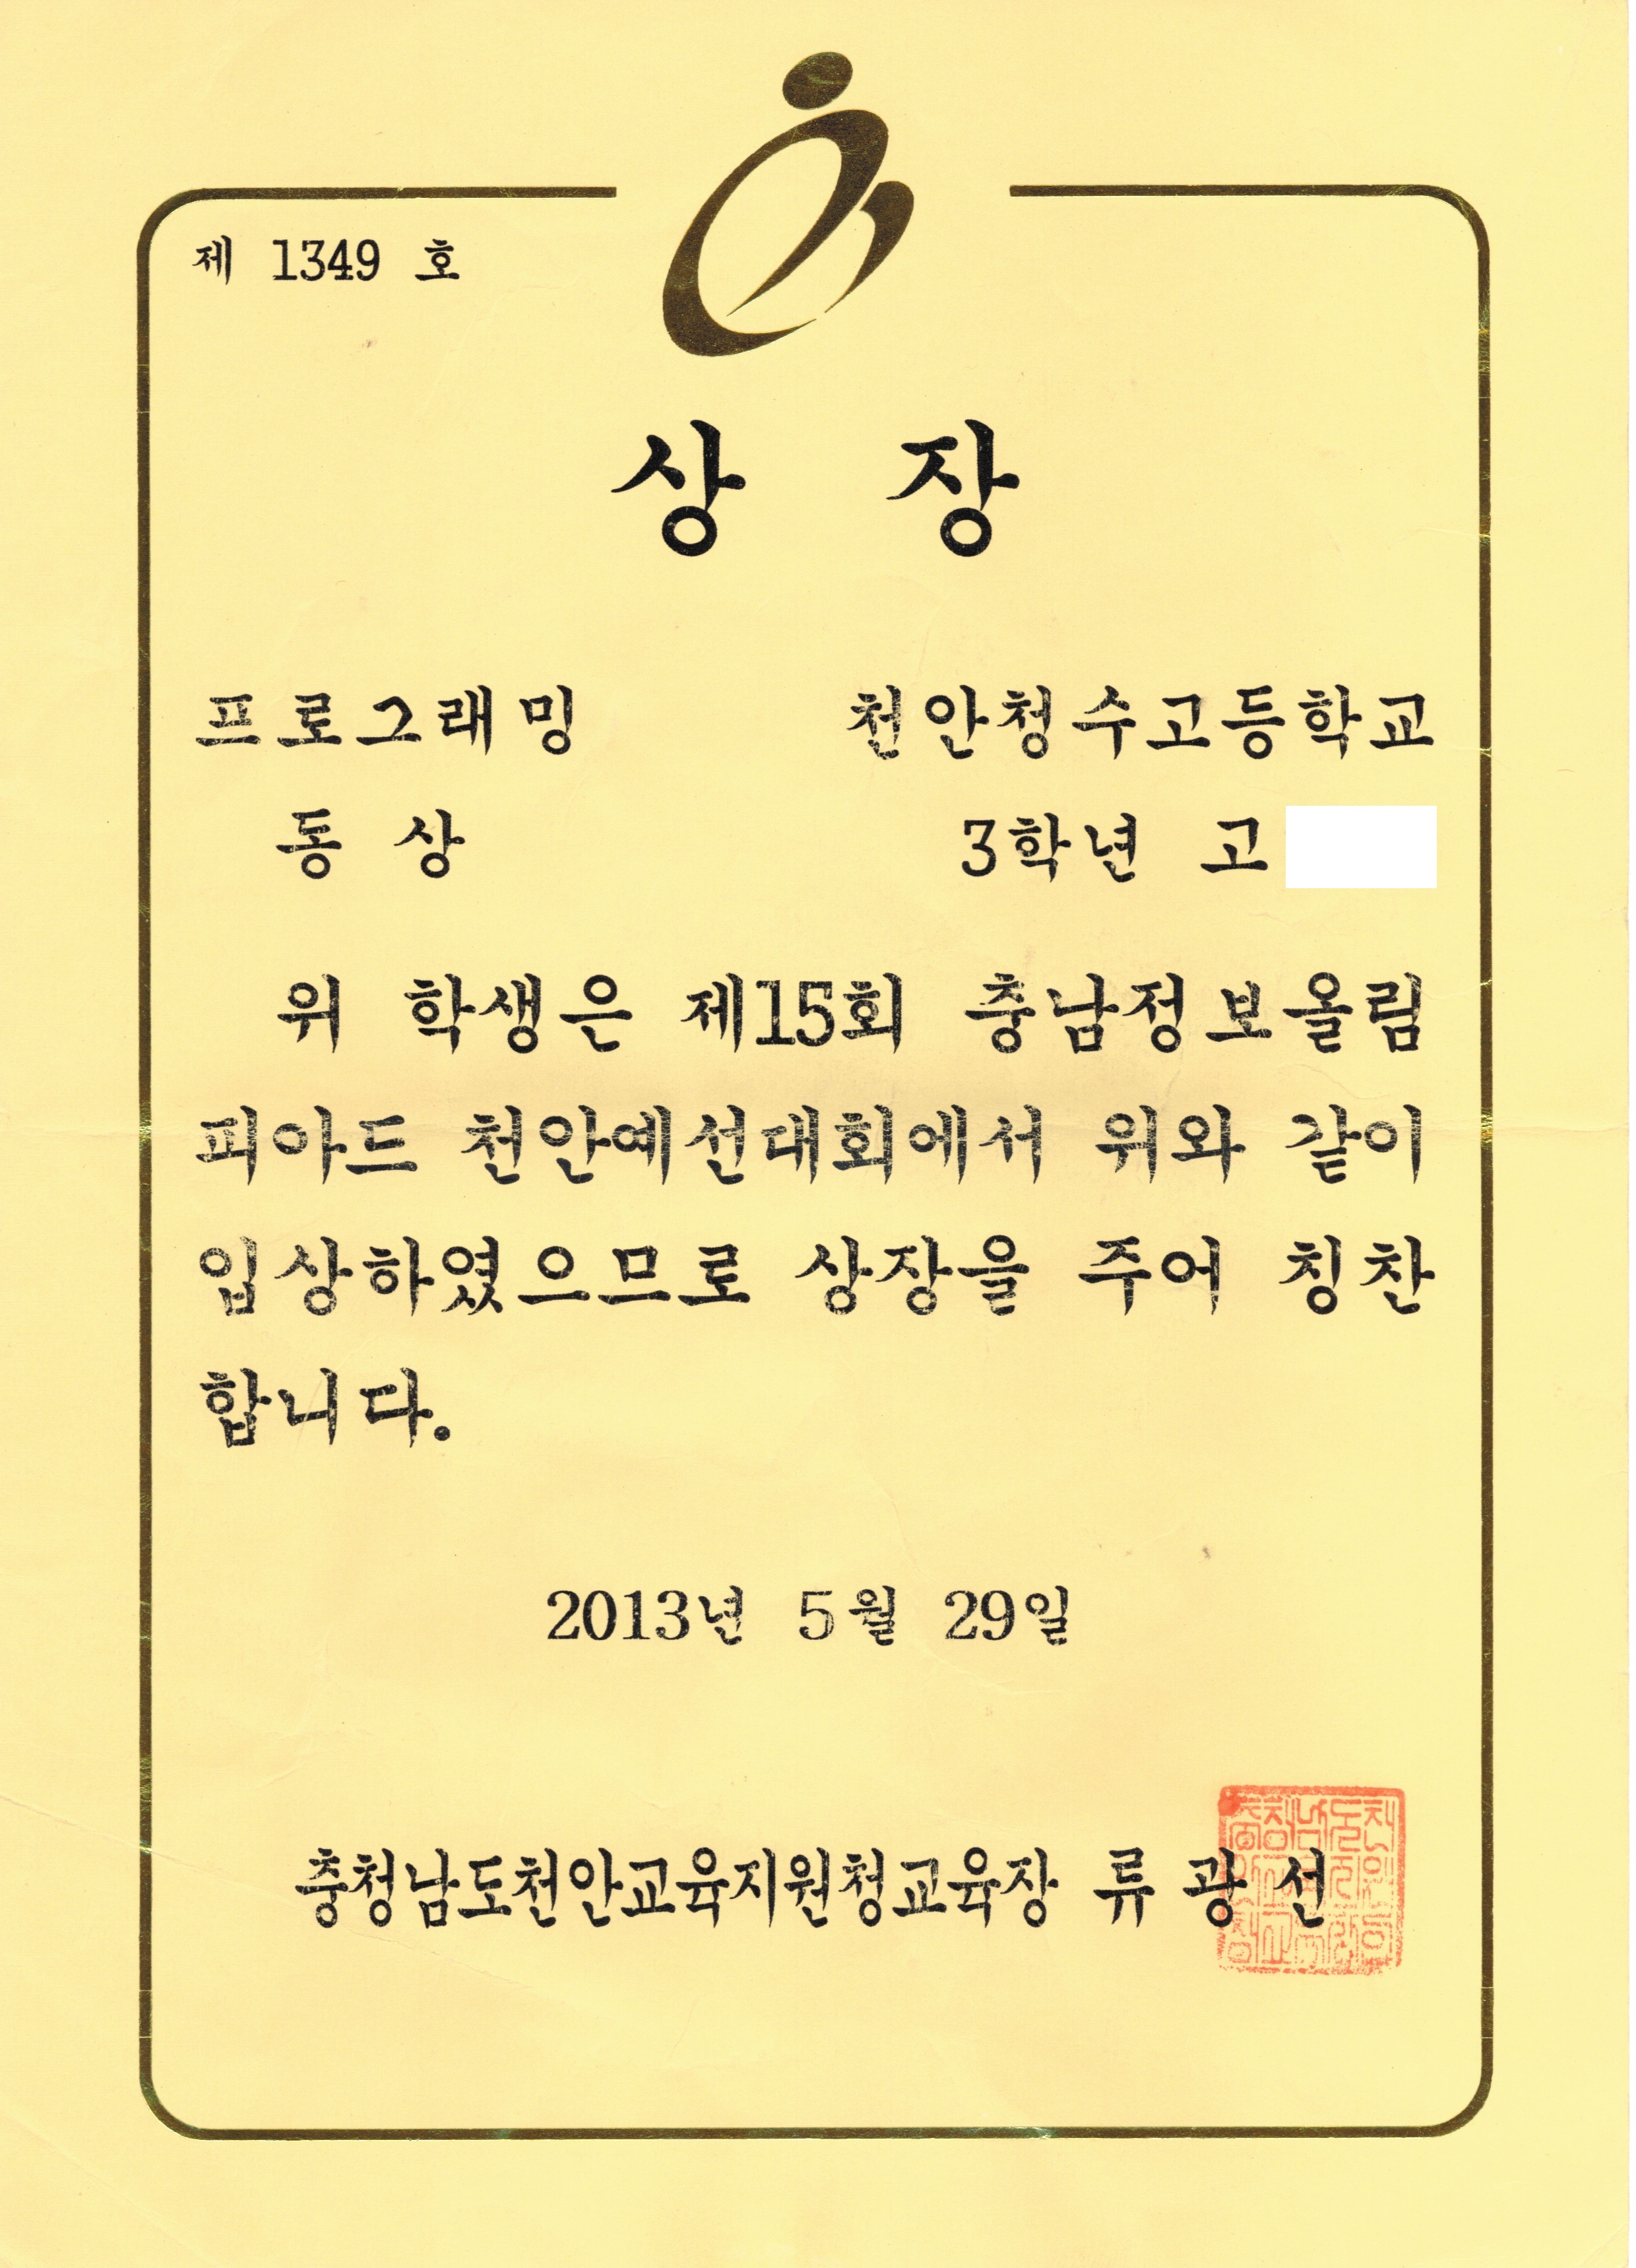 제 1349 호
상 장
프로그래밍 천안청수고등학교
동 상 3학년 고
위 학생은 제15회 충남정보올림
피아드 천안예선대회에서 위와 같이
입상하였으므로 상장을 주어 칭찬
합니다.
2013년 5월 29일
충청남도천안교육지원청교육장 류 광 선